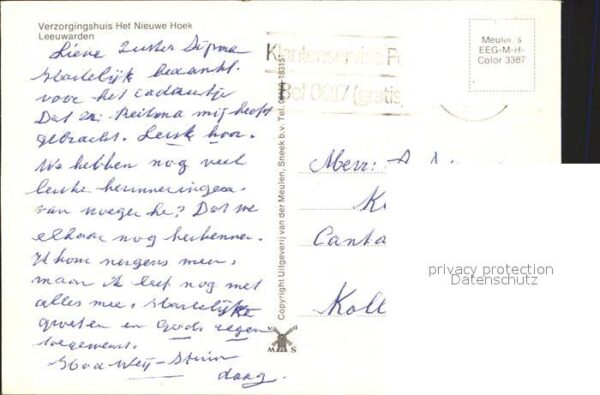 Verzorgingshuis Het Nieuwe Hoek
Leeuwarden
Lieve Zuster Dijkma
Hartelijk bedankt.
voor het cadeautje
Dat zr. Reitsma mij heeft
gebracht. Leuk hoor.
We hebben nog veel
leuke herinneringen.
van vroeger he? Dat we
elkaar nog herkennen.
Ik kom nergens meer,
maar ik leef nog met
alles mee, Hartelijke
groeten en Gods zegen
toegewenst.
daag.
Klantenservice Po
Bel 0017 (gratis)
Meulen's
EEG-M-H-
Color 3387
Copyright Uitgeverij van der Meulen, Sneek b.v. Tel.
v d
M S
Mevr: A
K
Canta
Koll
privacy protection
Datenschutz